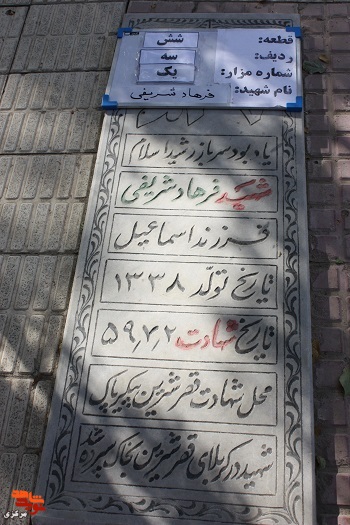 قطعه: شش
ردیف: سه
شماره مزار: یک
نام شهید: فرهاد شریفی
یادبود سرباز رشید اسلام
شهید فرهاد شریفی
فرزند اسماعیل
تاریخ تولد ۱۳۳۸
تاریخ شهادت ۵۹٫۷٫۲
محل شهادت قصرشیرین پیکر پاک
شهید در کربلای قصرشیرین بخاک سپرده شد
مرکزی